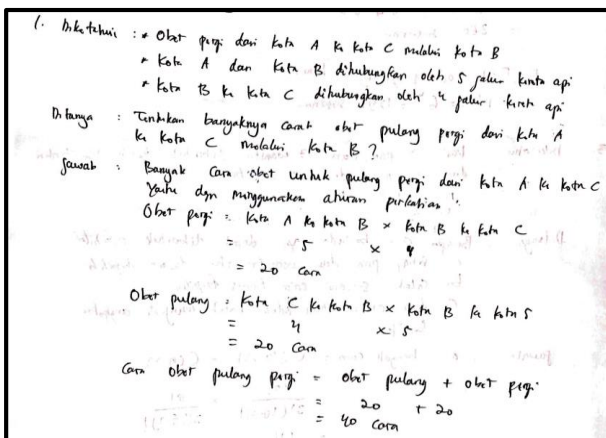 1. Diketahui : * Obet pergi dari Kota A ke Kota C melalui Kota B
* Kota A dan Kota B dihubungkan oleh 5 jalur kereta api
* Kota B ke Kota C dihubungkan oleh 4 jalur kereta api
Ditanya : Tentukan banyaknya cara obet pulang pergi dari Kota A
ke Kota C melalui Kota B?
Jawab : Banyak cara obet untuk pulang pergi dari kota A ke kota C
yaitu dgn menggunakan aturan perkalian :
Obet pergi = Kota A ke kota B × Kota B ke kota C
= 5 × 4
= 20 cara
Obet pulang = Kota C ke Kota B × Kota B ke kota 5
= 4 × 5
= 20 cara
Cara obet pulang pergi = obet pulang + obet pergi
= 20 + 20
= 40 cara